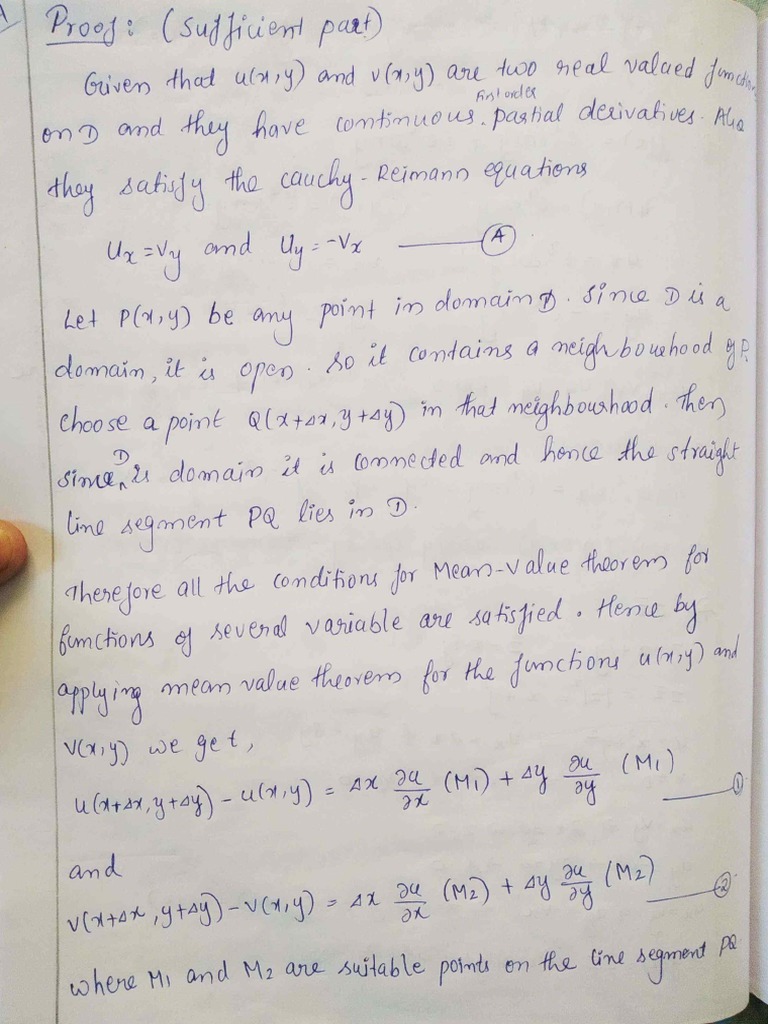 Proof: (Sufficient part)
Given that u(x,y) and v(x,y) are two real valued function
on D and they have continuous first order partial derivatives. Also
they satisfy the Cauchy-Reimann equations
Ux = Vy and Uy = -Vx —— (A)
Let P(x,y) be any point in domain D. Since D is a
domain, it is open. So it contains a neighbourhood of P.
choose a point Q(x+Δx, y+Δy) in that neighbourhood. Then
since D is domain it is connected and hence the straight
line segment PQ lies in D.
Therefore all the conditions for Mean-Value theorem for
functions of several variable are satisfied. Hence by
applying mean value theorem for the functions u(x,y) and
v(x,y) we get,
u(x+Δx, y+Δy) - u(x,y) = Δx ∂u/∂x (M1) + Δy ∂u/∂y (M1) —— (1)
and
v(x+Δx, y+Δy) - v(x,y) = Δx ∂u/∂x (M2) + Δy ∂u/∂y (M2) —— (2)
where M1 and M2 are suitable points on the line segment PQ